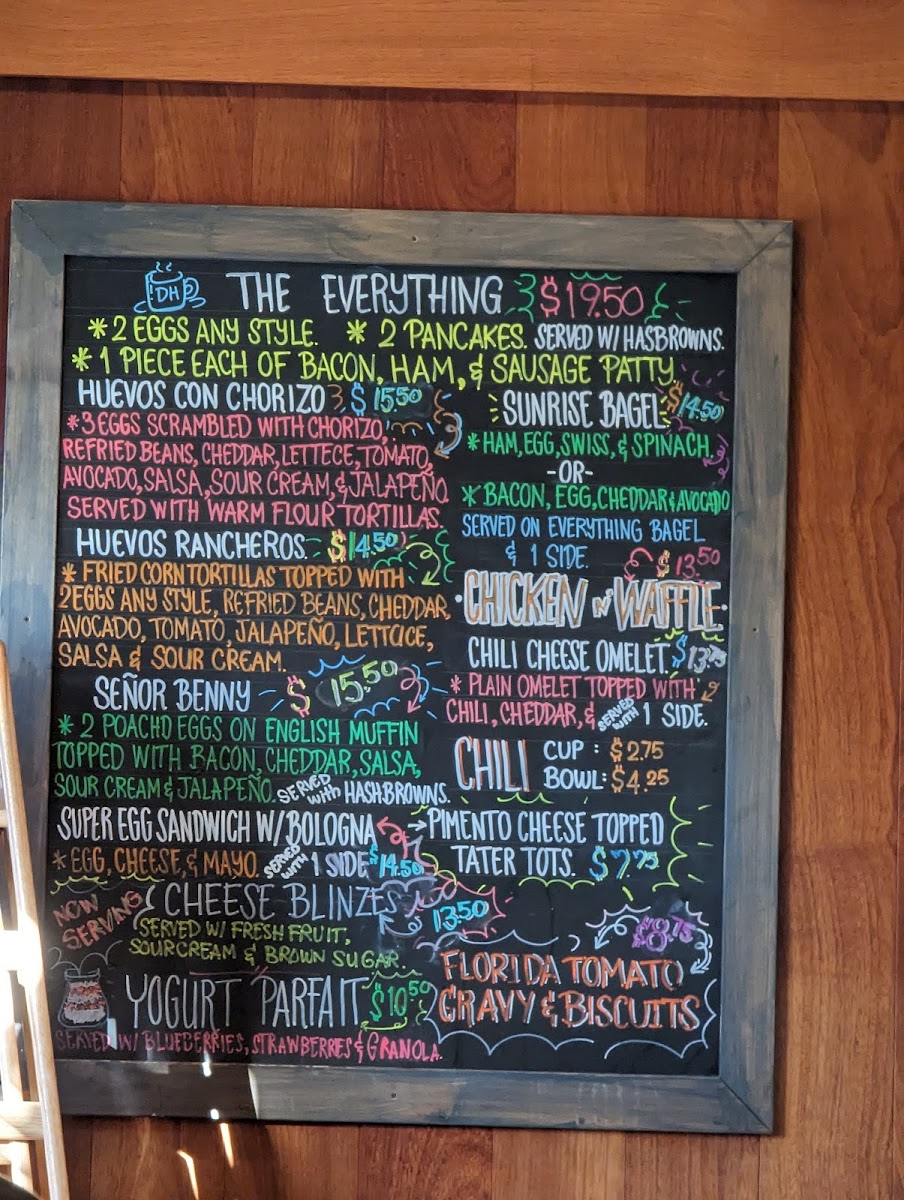 DH THE EVERYTHING $19.50
* 2 EGGS ANY STYLE. * 2 PANCAKES. SERVED W/ HASBROWNS.
* 1 PIECE EACH OF BACON, HAM, & SAUSAGE PATTY.
HUEVOS CON CHORIZO $15.50
*3 EGGS SCRAMBLED WITH CHORIZO,
REFRIED BEANS, CHEDDAR, LETTECE, TOMATO,
AVOCADO, SALSA, SOUR CREAM, & JALAPEÑO
SERVED WITH WARM FLOUR TORTILLAS.
HUEVOS RANCHEROS. $14.50
* FRIED CORN TORTILLAS TOPPED WITH
2 EGGS ANY STYLE, REFRIED BEANS, CHEDDAR,
AVOCADO, TOMATO, JALAPEÑO, LETTCICE,
SALSA & SOUR CREAM.
SEÑOR BENNY $15.50
* 2 POACHD EGGS ON ENGLISH MUFFIN
TOPPED WITH BACON, CHEDDAR, SALSA,
SOUR CREAM & JALAPEÑO. SERVED with HASHBROWNS.
SUPER EGG SANDWICH W/ BOLOGNA
* EGG, CHEESE, & MAYO. SERVED WITH 1 SIDE $14.50
NOW SERVING CHEESE BLINZES 13.50
SERVED W/ FRESH FRUIT,
SOUR CREAM & BROWN SUGAR.
YOGURT PARFAIT $10.50
SEAVED W/ BLUEBERRIES, STRAWBERRES & GRANOLA.
SUNRISE BAGEL $14.50
* HAM, EGG, SWISS, & SPINACH.
-OR-
* BACON, EGG, CHEDDAR & AVOCADO
SERVED ON EVERYTHING BAGEL
& 1 SIDE.
$13.50
CHICKEN N' WAFFLE
CHILI CHEESE OMELET. $13.75
* PLAIN OMELET TOPPED WITH
CHILI, CHEDDAR, & SERVED WITH 1 SIDE.
CHILI CUP: $2.75
BOWL: $4.25
PIMENTO CHEESE TOPPED
TATER TOTS. $7.75
$8.75
FLORIDA TOMATO
GRAVY & BISCUITS